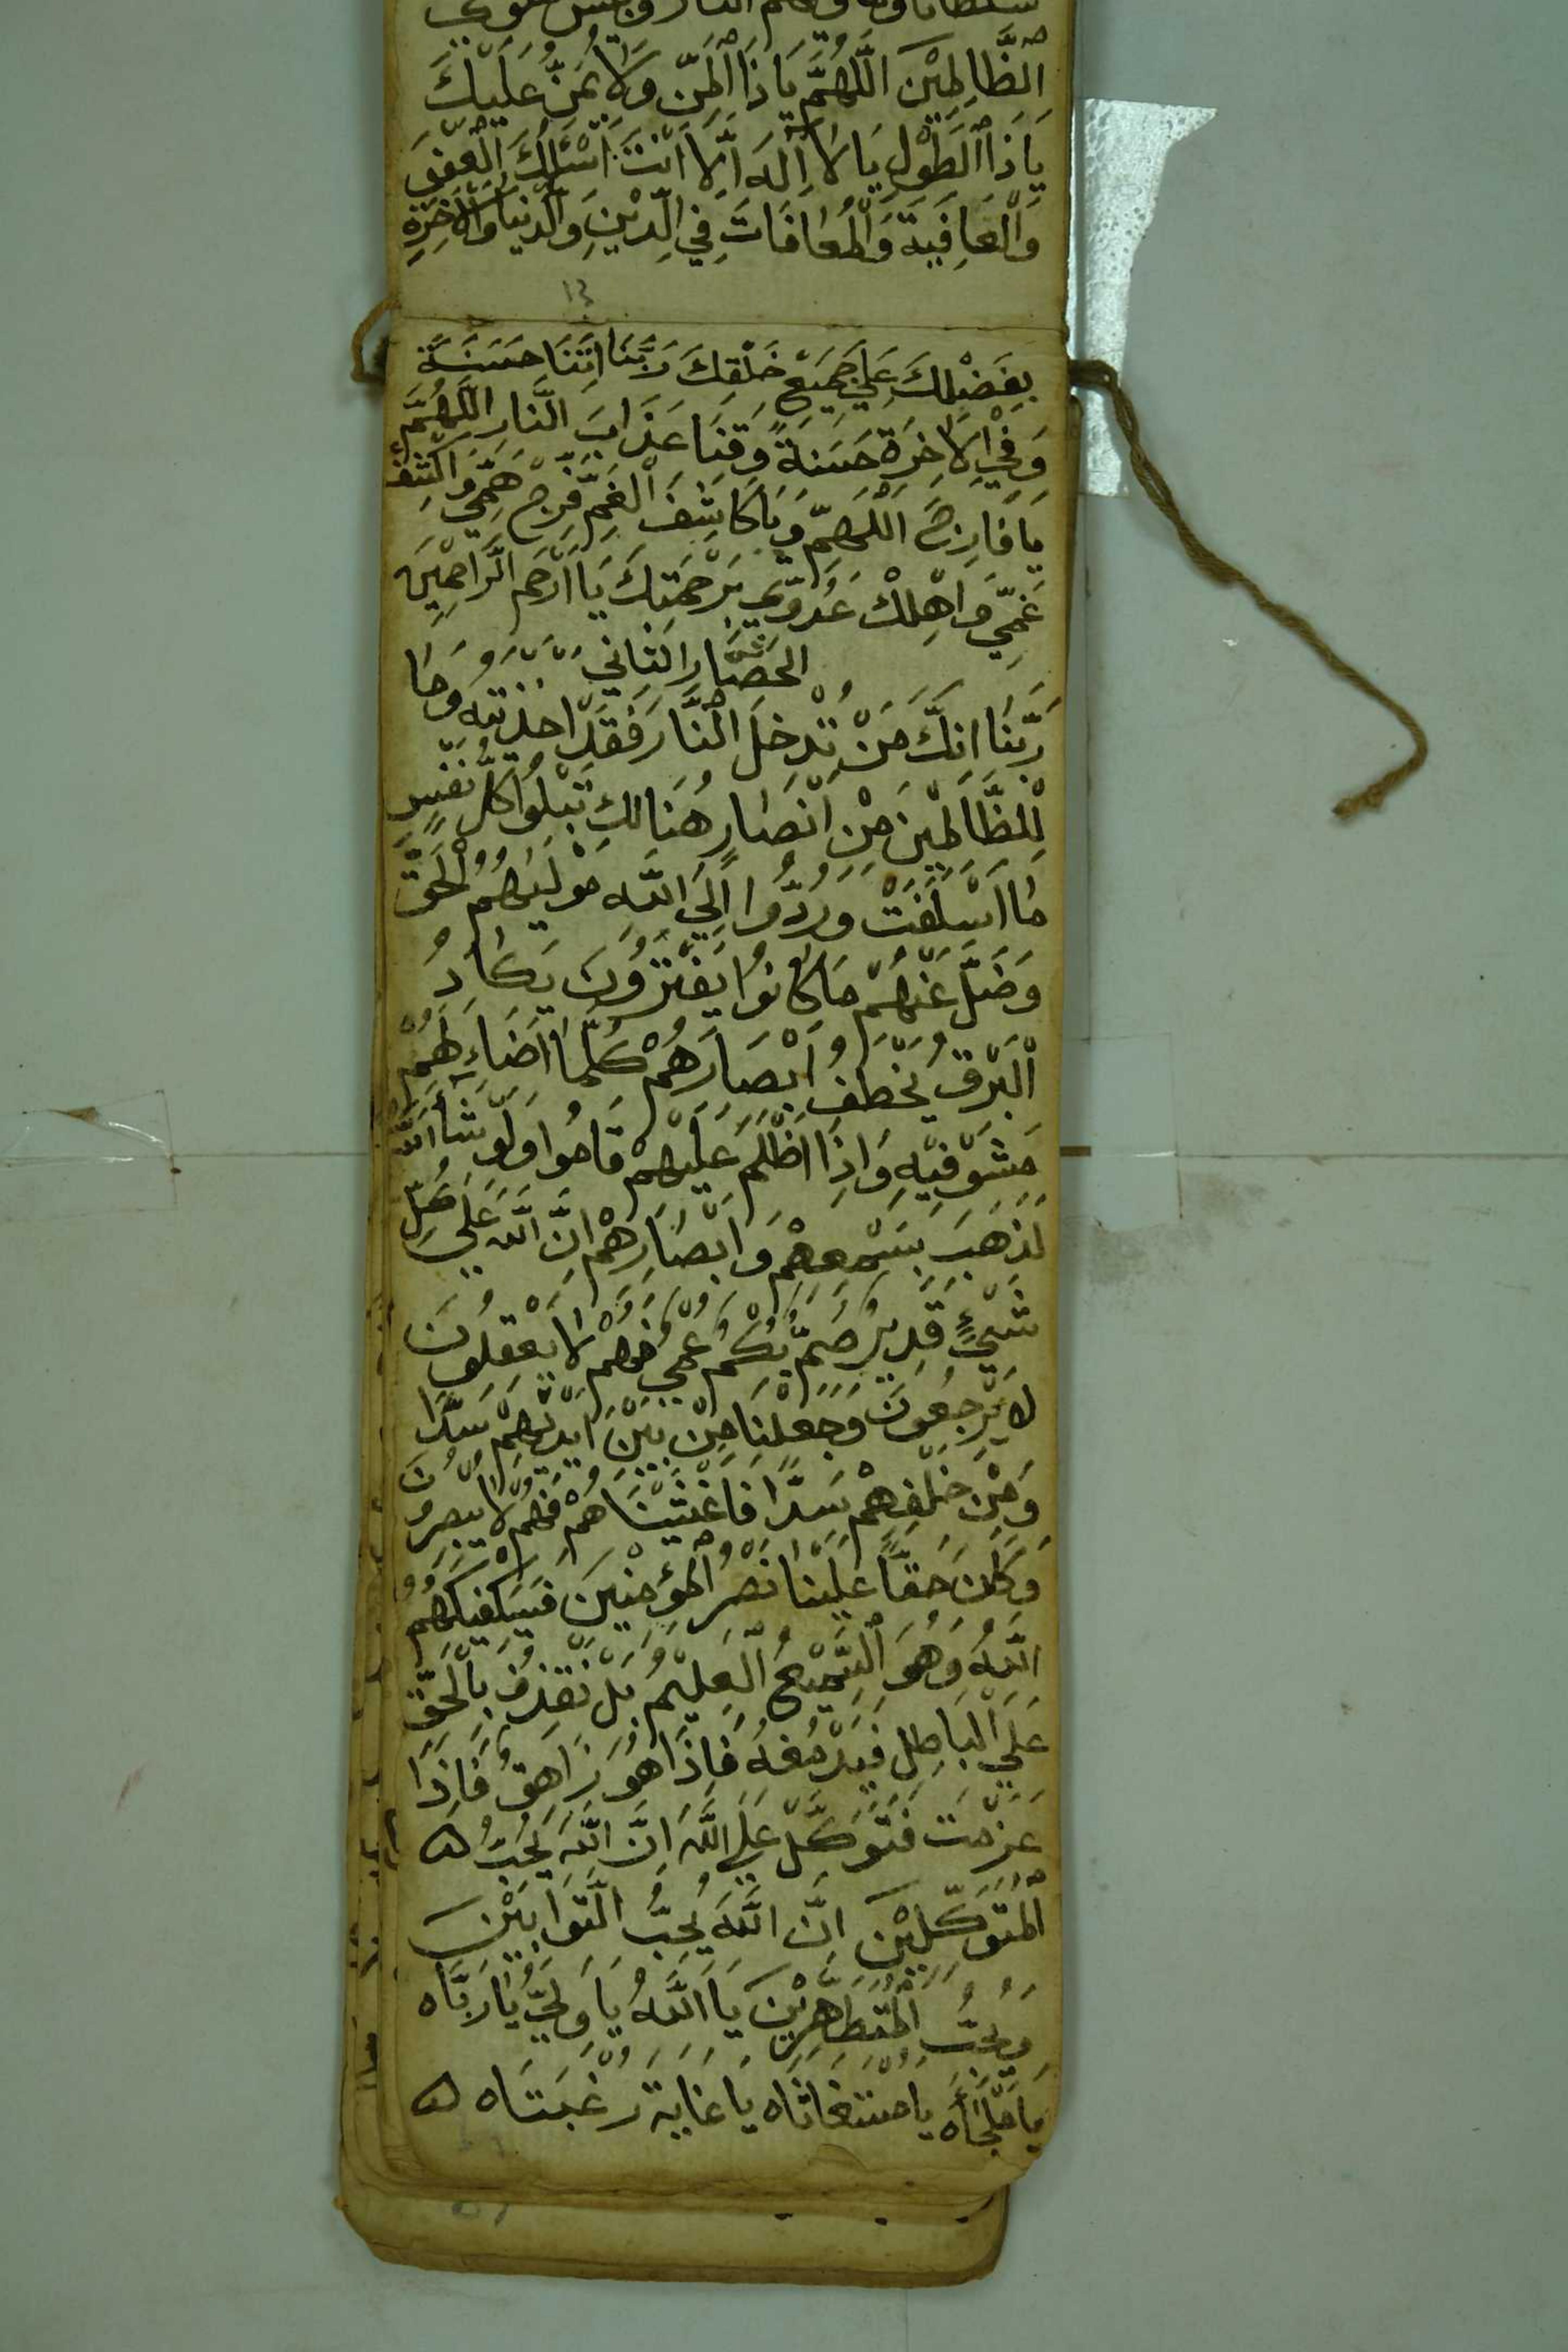 الظَّالِمِيْنَ اَللّٰهُمَّ يَا ذَا الْمَنِّ وَلَا يُمَنُّ عَلَيْكَ
يَا ذَا الطَّوْلِ يَا لَا اِلٰهَ اِلَّا اَنْتَ اَسْئَلُكَ الْعَفْوَ
وَالْعَافِيَةَ وَالْمُعَافَاتَ فِي الدِّيْنِ وَالدُّنْيَا وَالْاٰخِرَةِ
١٣
بِفَضْلِكَ عَلٰي جَمِيْعِ خَلْقِكَ رَبَّنَا اٰتِنَا حَسَنَةً
وَفِي الْاٰخِرَةِ حَسَنَةً وَقِنَا عَذَابَ النَّارِ اَللّٰهُمَّ
يَا فَارِجَ الْهَمِّ وَيَا كَاشِفَ الْغَمِّ فَرِّجْ هَمِّي وَاكْشِفْ
غَمِّي وَاَهْلِكْ عَدُوِّي بِرَحْمَتِكَ يَا اَرْحَمَ الرَّاحِمِيْنَ
الحصار الثاني
رَبَّنَا اِنَّكَ مَنْ تُدْخِلِ النَّارَ فَقَدْ اَخْزَيْتَهُ وَمَا
لِلظَّالِمِيْنَ مِنْ اَنْصَارٍ هُنَالِكَ تَبْلُوا كُلُّ نَفْسٍ
مَا اَسْلَفَتْ وَرُدُّوا اِلَي اللّٰهِ مَوْلٰيهُمُ الْحَقِّ
وَضَلَّ عَنْهُمْ مَا كَانُوْا يَفْتَرُوْنَ يَكَادُ
الْبَرْقُ يَخْطَفُ اَبْصَارَهُمْ كُلَّمَا اَضَاءَ لَهُمْ
مَشَوْ فِيْهِ وَاِذَا اَظْلَمَ عَلَيْهِمْ قَامُوا وَلَوْ شَآءَ اللّٰهُ
لَذَهَبَ بِسَمْعِهِمْ وَاَبْصَارِهِمْ اِنَّ اللّٰهَ عَلٰي كُلِّ
شَيْءٍ قَدِيْرٌ صُمٌّ بُكْمٌ عُمْيٌ فَهُمْ لَا يَعْقِلُوْنَ
لَا يَرْجِعُوْنَ وَجَعَلْنَا مِنْ بَيْنِ اَيْدِيْهِمْ سَدًّا
وَمِنْ خَلْفِهِمْ سَدًّا فَاَغْشَيْنَاهُمْ فَهُمْ لَا يُبْصِرُوْنَ
وَكَانَ حَقًّا عَلَيْنَا نَصْرُ الْمُؤْمِنِيْنَ فَسَيَكْفِيْكَهُمُ
اللّٰهُ وَهُوَ السَّمِيْعُ الْعَلِيْمُ بَلْ نَقْذِفُ بِالْحَقِّ
عَلَي الْبَاطِلِ فَيَدْمَغُهُ فَاِذَا هُوَ زَاهِقٌ فَاِذَا
عَزَمْتَ فَتَوَكَّلْ عَلَي اللّٰهِ اِنَّ اللّٰهَ يُحِبُّ ه
الْمُتَوَكِّلِيْنَ اِنَّ اللّٰهَ يُحِبُّ التَّوَّابِيْنَ
وَيُحِبُّ الْمُتَطَهِّرِيْنَ يَا اَللّٰهُ يَا وَلِيُّ يَا رَبَّاه
يَا مَلْجَاَه يَا مُسْتَغَاثَاه يَا غَايَةَ رَغْبَتَاه ه